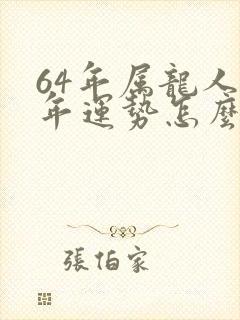 64年属龍人
年運勢怎麼
張伯家